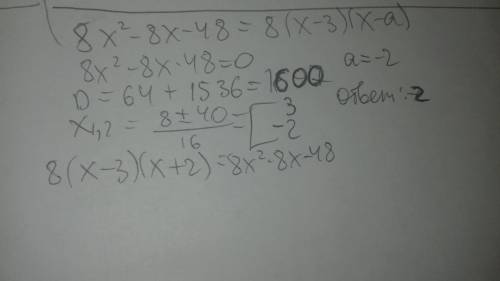 8x² - 8x - 48 = 8(x-3)(x-a)
8x² - 8x - 48 = 0
a = -2
D = 64 + 1536 = 1600
ответ: -2
x₁,₂ = (8 ± 40)/16 = [3
-2
8(x-3)(x+2) = 8x² - 8x - 48